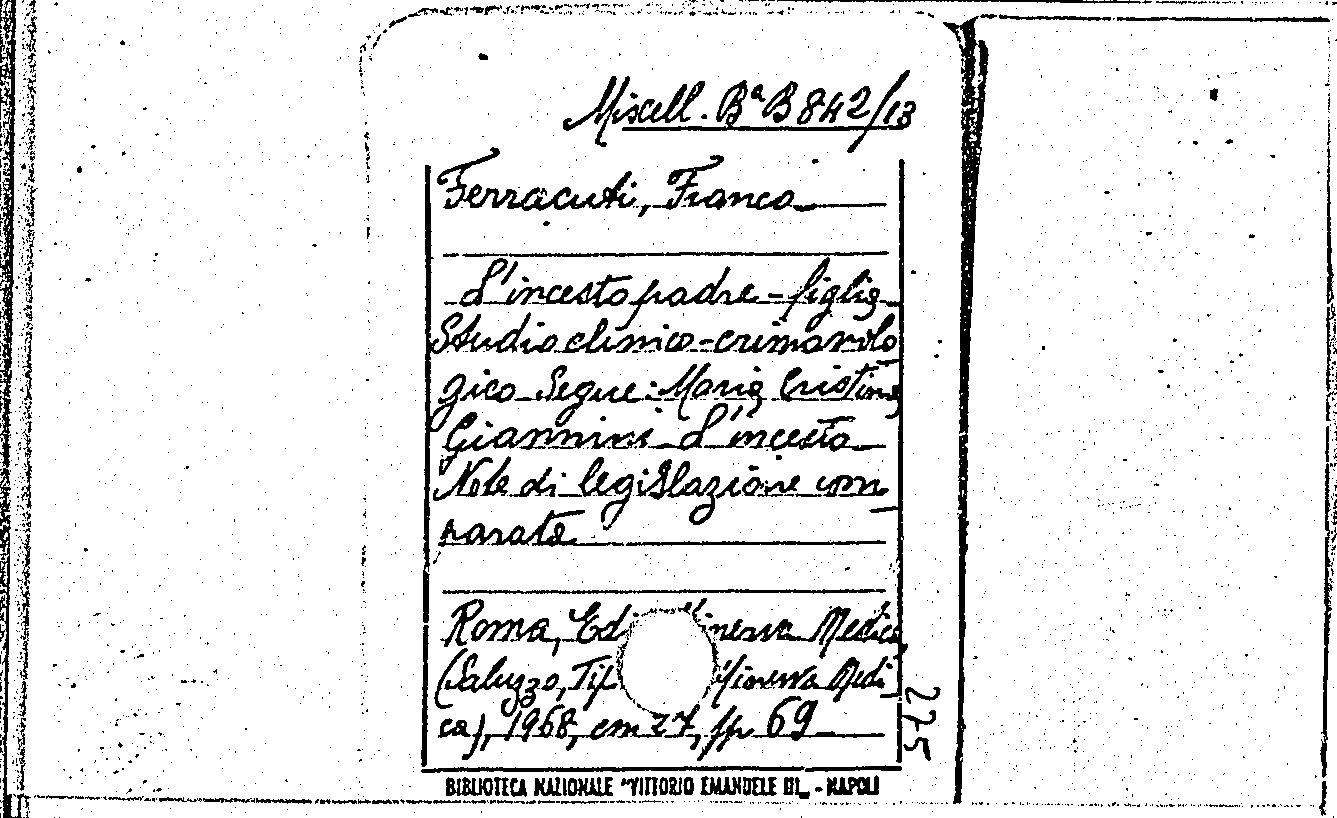 Miscell. Bª B 842/13
Ferracuti, Franco
L'incesto padre - figlia
Studio clinico-criminolo
gico Segue: Maria Cristina
Giannini L'incesto
Note di legislazione com
parata
Roma, Ed. Minerva Medica
(Saluzzo, Tip. Minerva Medi
ca), 1968, cm 27, pp 69
275
BIBLIOTECA NAZIONALE "VITTORIO EMANUELE III„ - NAPOLI